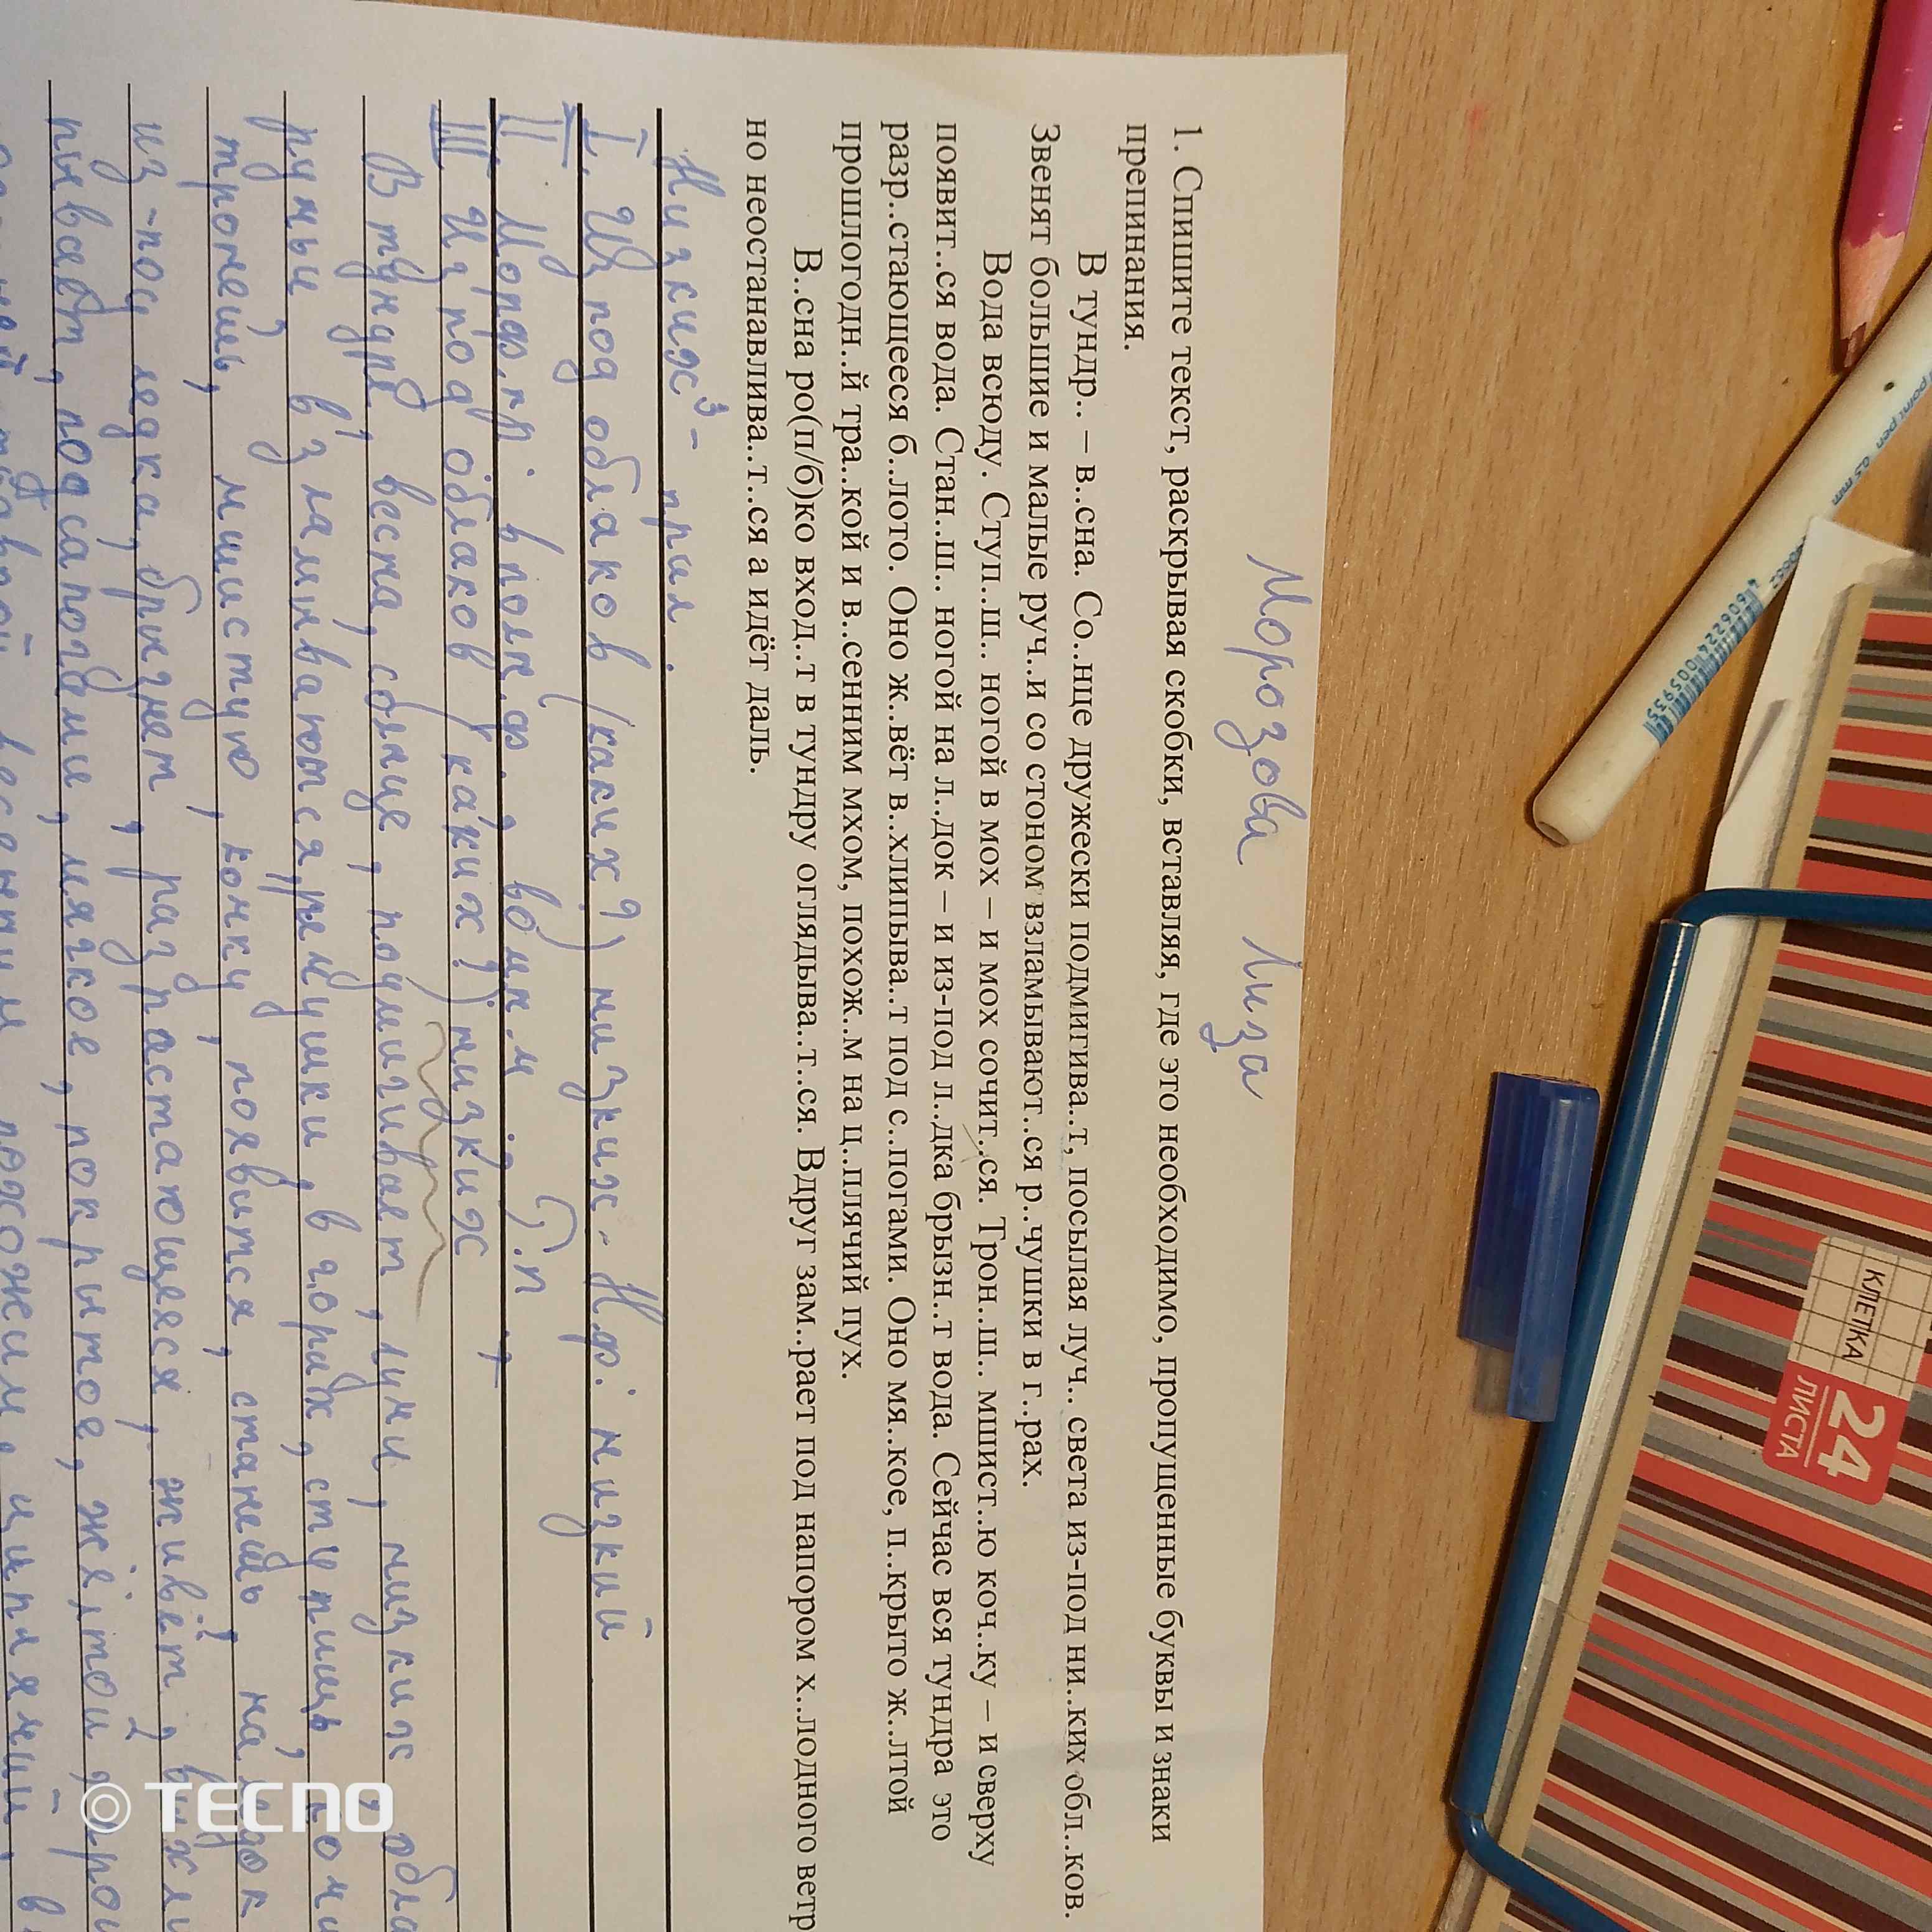 Морозова Лиза
1. Спишите текст, раскрывая скобки, вставляя, где это необходимо, пропущенные буквы и знаки
препинания.
В тундр.. – в..сна. Со..нце дружески подмигива..т, посылая луч.. света из-под ни..ких обл..ков.
Звенят большие и малые руч..и со стоном взламывают..ся р..чушки в г..рах.
Вода всюду. Ступ..ш.. ногой в мох – и мох сочит..ся. Трон..ш.. мшист..ю коч..ку – и сверху
появит..ся вода. Стан..ш.. ногой на л..док – и из-под л..дка брызн..т вода. Сейчас вся тундра это
разр..стающееся б..лото. Оно ж..вёт в..хлипыва..т под с..погами. Оно мя..кое, п..крыто ж..лтой
прошлогодн..й тра..кой и в..сенним мхом, похож..м на ц..плячий пух.
В..сна ро(п/б)ко вход..т в тундру оглядыва..т..ся. Вдруг зам..рает под напором х..лодного ветр
но неостанавлива..т..ся а идёт даль.
Низких³ - прил.
I. Из под облаков (каких?) низких - Н.ф: низкий
II. Морф.пр: в полн.ф., во мн.ч.,
III. Из под облаков (каких?) низких
В тундре, весна, солнце, подмигивает, лучи, низких обла
ручьи, взламываются, речушки, в горах, ступишь, сочи
тронешь, мшистую, кочку, появится, станешь, на ледок
из-под ледка, брызнет, разрастающееся, живёт,
пывает, под сапогами, мягкое, покрытое, жёлтой,
КЛЕТКА
24
ЛИСТА
point pen 0.5 mm
TECNO